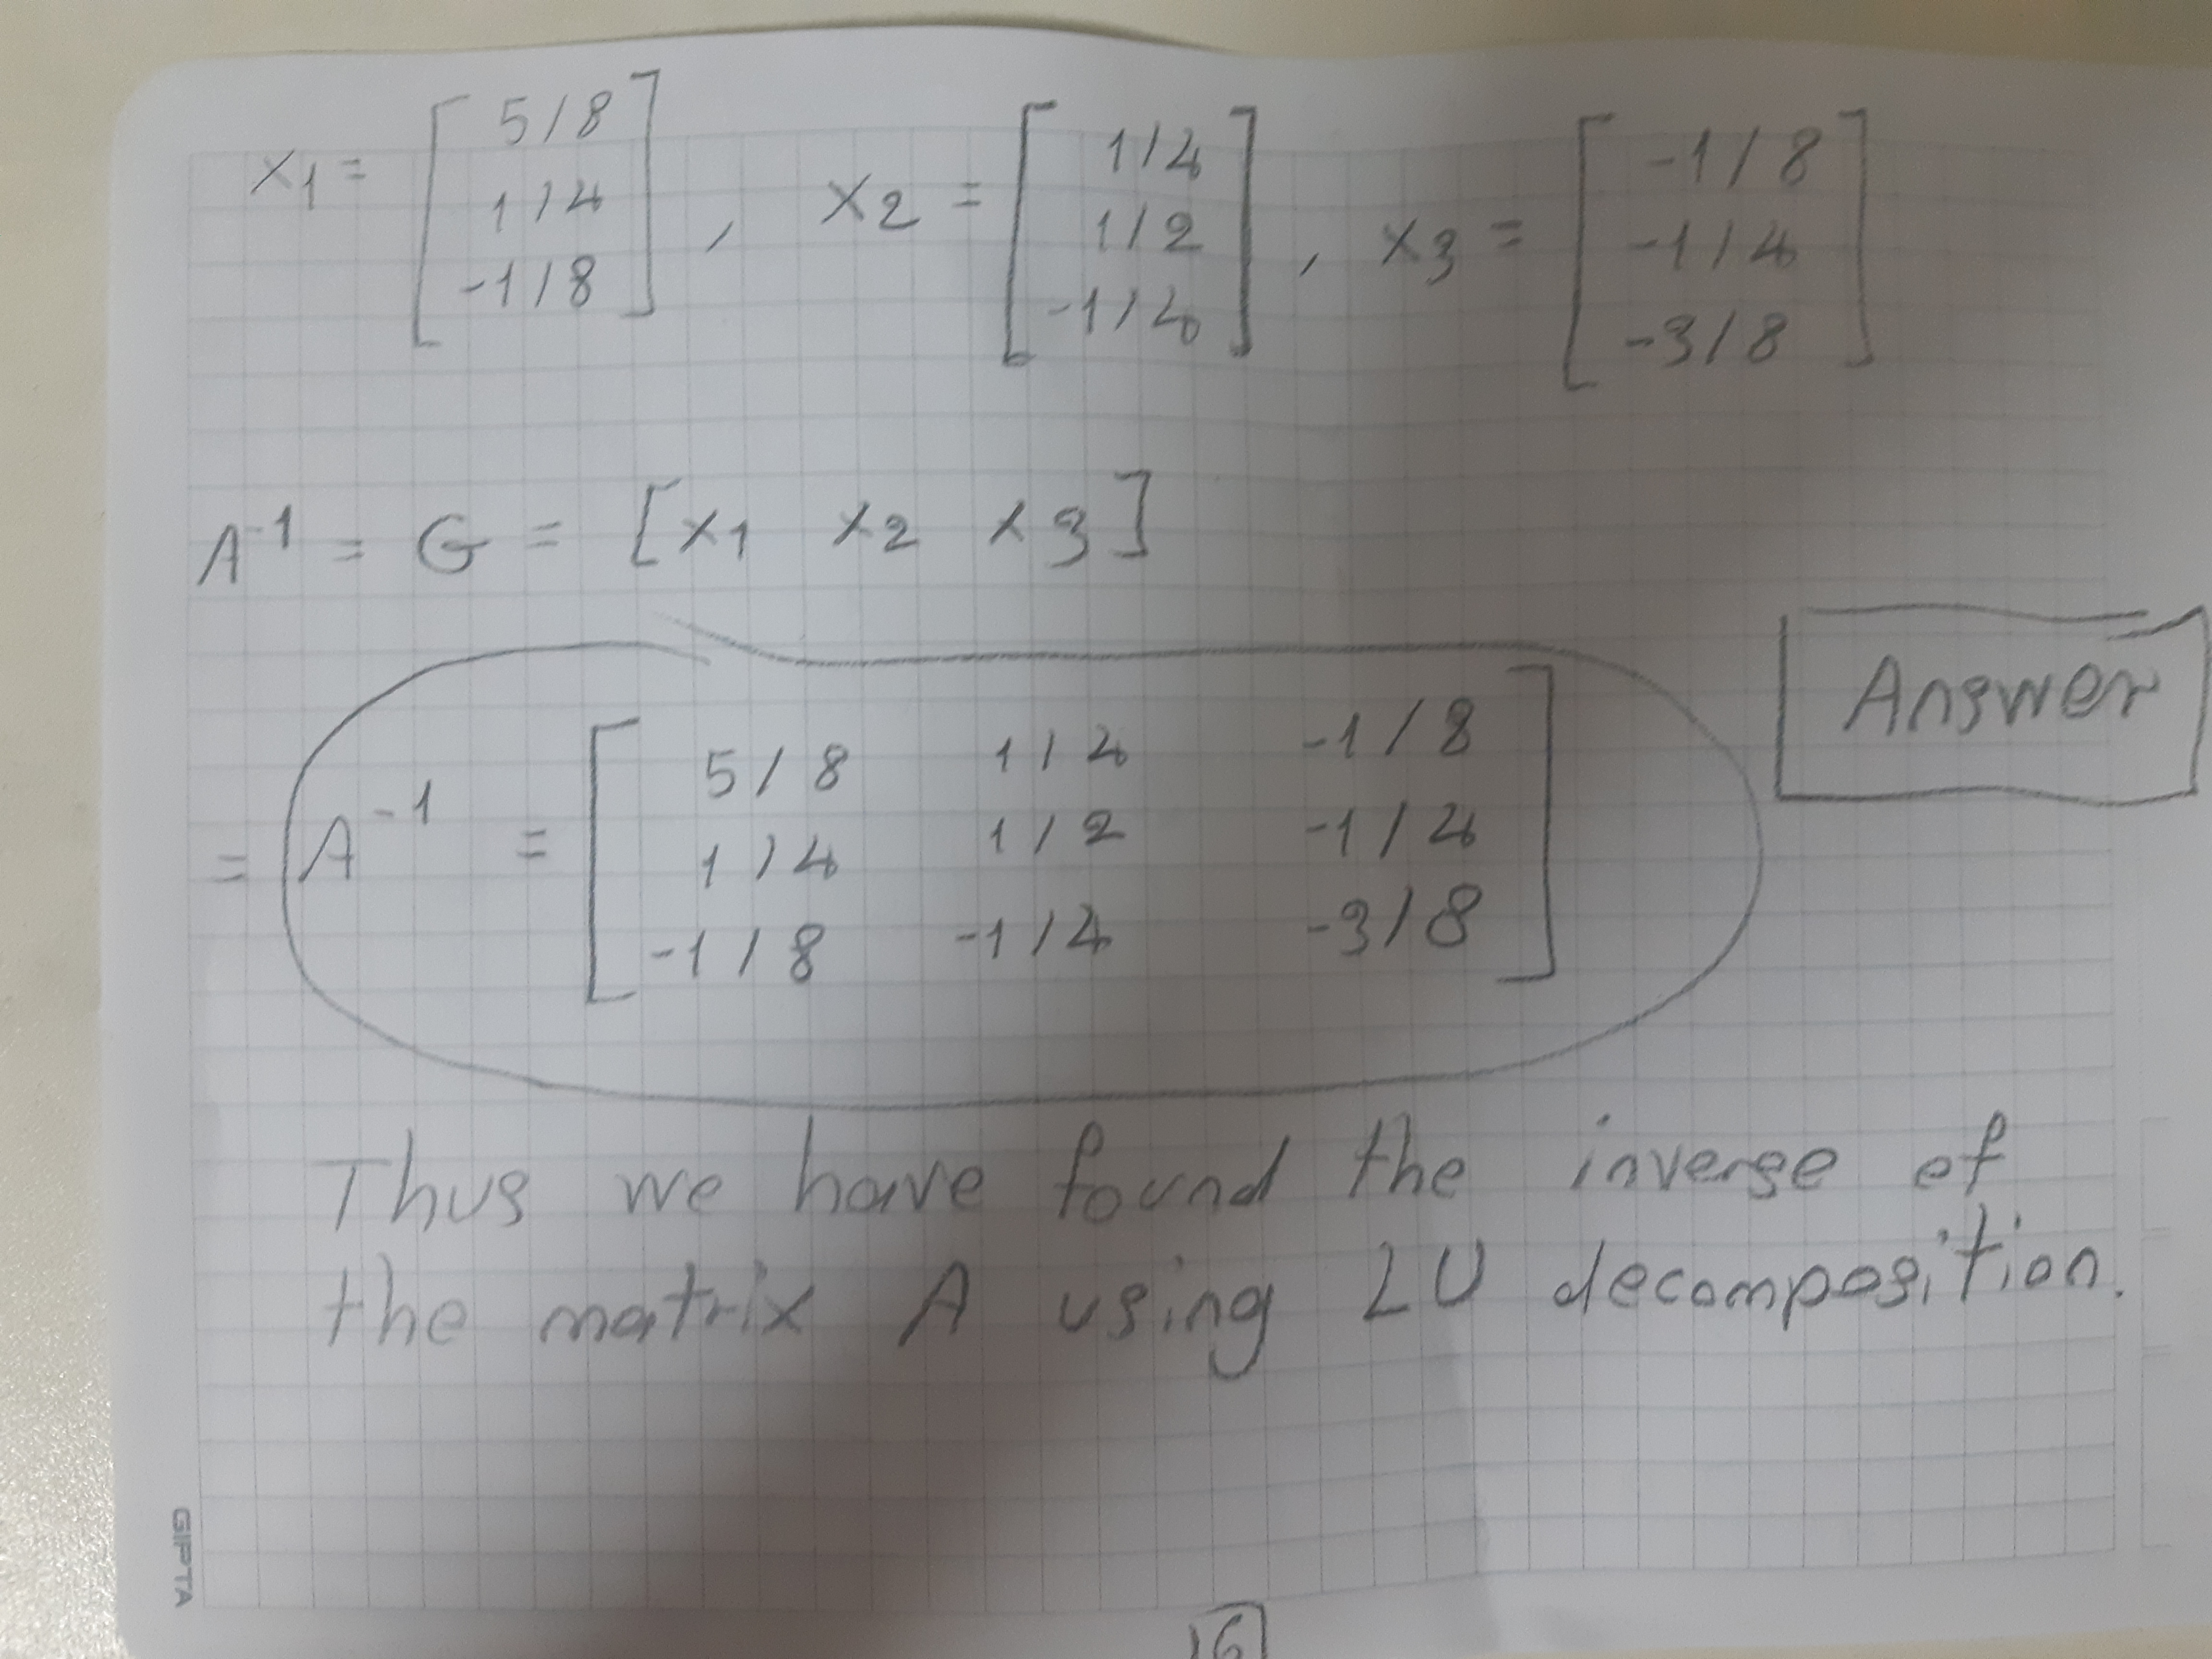 x1 = [ 5/8 1/4 -1/8 ] , x2 = [ 1/4 1/2 -1/4 ] , x3 = [ -1/8 -1/4 -3/8 ]
A^-1 = G = [ x1 x2 x3 ]
Answer
= A^-1 = [ 5/8 1/4 -1/8
1/4 1/2 -1/4
-1/8 -1/4 -3/8 ]
Thus we have found the inverse of
the matrix A using LU decomposition.
GIPTA
16